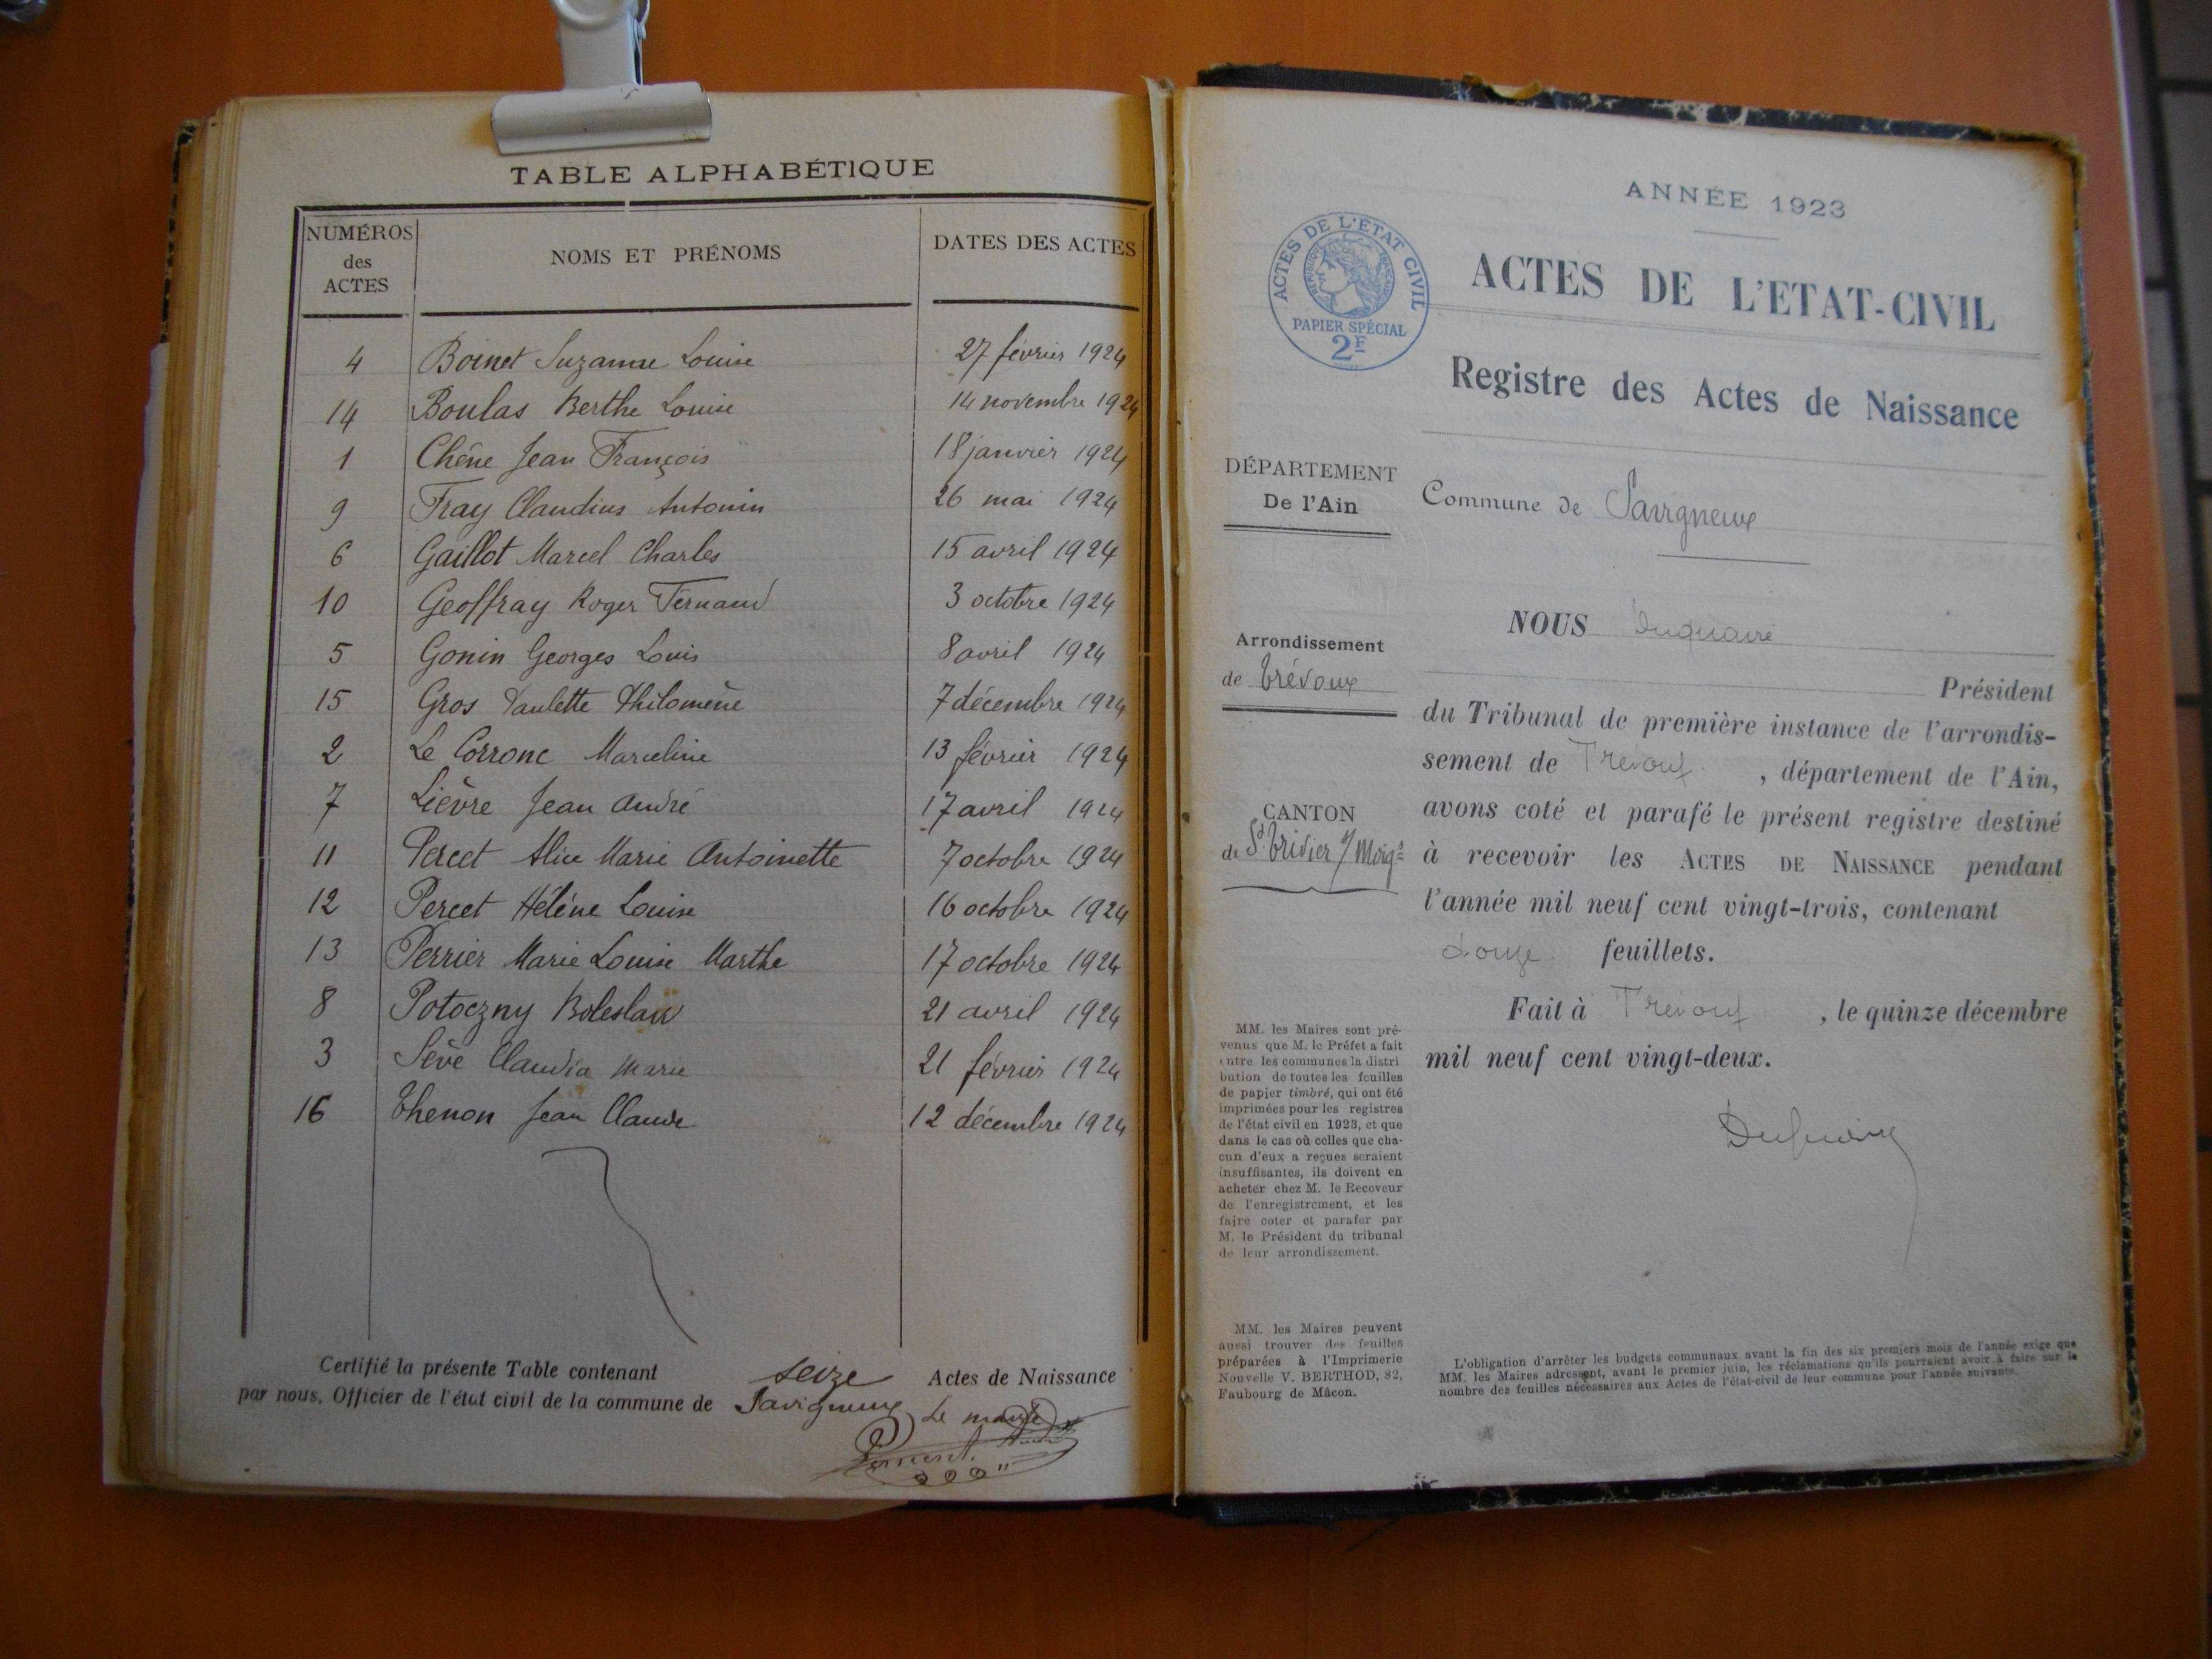 TABLE ALPHABÉTIQUE
NUMÉROS des ACTES NOMS ET PRÉNOMS DATES DES ACTES
4 Boinet Suzanne Louise 27 février 1924
14 Boulas Berthe Louise 14 novembre 1924
1 Chêne Jean François 18 janvier 1924
9 Fray Claudius Antonin 26 mai 1924
6 Gaillot Marcel Charles 15 avril 1924
10 Geoffray Roger Fernand 3 octobre 1924
5 Gonin Georges Louis 8 avril 1924
15 Gros Paulette Philomène 7 décembre 1924
2 Le Corronc Marceline 13 février 1924
7 Lièvre Jean André 17 avril 1924
11 Percet Alice Marie Antoinette 7 octobre 1924
12 Percet Hélène Louise 16 octobre 1924
13 Perrier Marie Louise Marthe 17 octobre 1924
8 Potoczny Boleslaw 21 avril 1924
3 Sève Claudia Marie 21 février 1924
16 Thenon Jean Claude 12 décembre 1924
Certifié la présente Table contenant seize Actes de Naissance
par nous, Officier de l'état civil de la commune de Savigneux
Le maire
ANNÉE 1923
ACTES DE L'ÉTAT CIVIL
RÉPUBLIQUE FRANÇAISE
PAPIER SPÉCIAL
2F
ACTES DE L'ETAT-CIVIL
Registre des Actes de Naissance
DÉPARTEMENT
De l'Ain
Commune de Savigneux
Arrondissement
de Trévoux
CANTON
de St Trivier s/ Moigs
NOUS
Président
du Tribunal de première instance de l'arrondis-
sement de Trévoux, département de l'Ain,
avons coté et parafé le présent registre destiné
à recevoir les ACTES DE NAISSANCE pendant
l'année mil neuf cent vingt-trois, contenant
douze feuillets.
Fait à Trévoux, le quinze décembre
mil neuf cent vingt-deux.
MM. les Maires sont pré-
venus que M. le Préfet a fait
entre les communes la distri
bution de toutes les feuilles
de papier timbré, qui ont été
imprimées pour les registres
de l'état civil en 1923, et que
dans le cas où celles que cha-
cun d'eux a reçues seraient
insuffisantes, ils doivent en
acheter chez M. le Receveur
de l'enregistrement, et les
faire coter et parafer par
M. le Président du tribunal
de leur arrondissement.
MM. les Maires peuvent
aussi trouver des feuilles
préparées à l'Imprimerie
Nouvelle V. BERTHOD, 82,
Faubourg de Mâcon.
L'obligation d'arrêter les budgets communaux avant la fin des six premiers mois de l'année exige que
MM. les Maires adressent, avant le premier juin, les réclamations qu'ils pourraient avoir à faire sur le
nombre des feuilles nécessaires aux Actes de l'état-civil de leur commune pour l'année suivante.